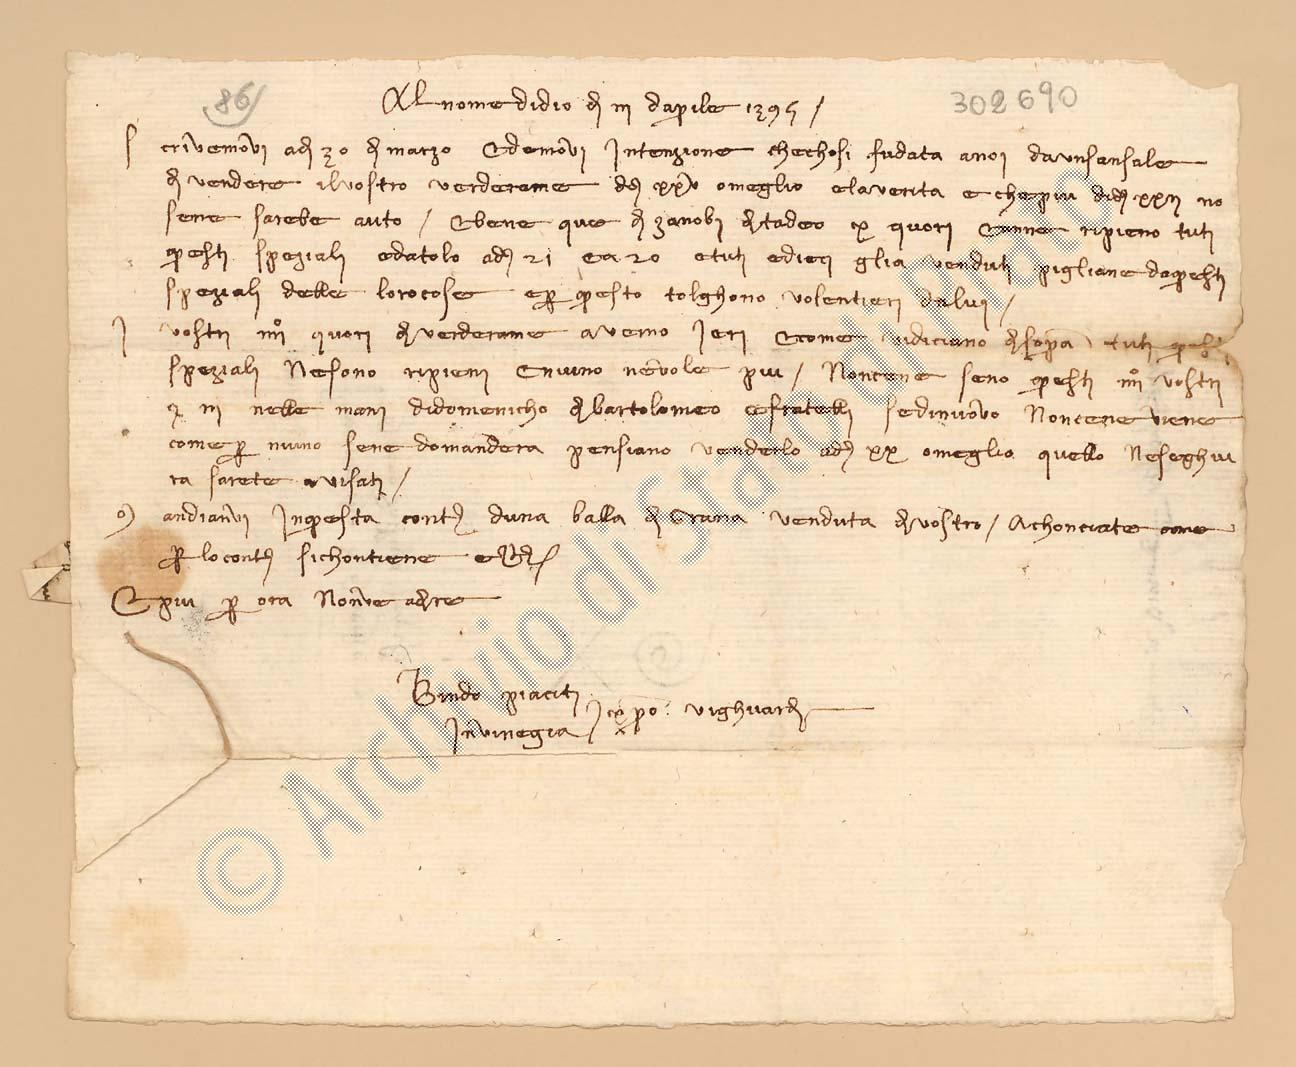 86 302690
Al nome di dio dì III d'aprile 1395 /
Scrivemovi a dì 30 di marzo e demovi intenzione che chosi fu data a noi da un sensale
di vendere il vostro verderame d XXV o meglio e la verità e che più di d XXII no
sene sarebe auto / E bene que di Zanobi di Tadeo X quori e anne ripieno tuti
questi speziali e datolo a d 21 e a 20 e tuti e dieci gli a venduti pigliane da questi
speziali delle loro cose e per questo tolghono volentieri da lui /
I vostri IIII quori di verderame avemo ieri e come vi diciano di sopra tuti questi
speziali ne sono ripieni e niuno ne vole più / Non cene seno questi IIII vostri
e III nelle mani di Domenicho di Bartolomeo e fratelli se di nuovo non cene viene
come per niuno sene domandera pensiano venderlo a d XX o meglio quello ne seghui
ra sarete avisati /
Mandianvi in questa conto d'una balla di grana venduta di vostro / Achonciate come
per lo conto si chontiene e
E più per ora non ve a dire
Bindo Piaciti
in Vinegia / Xpo vi ghuardi
© Archivio di Stato di Prato